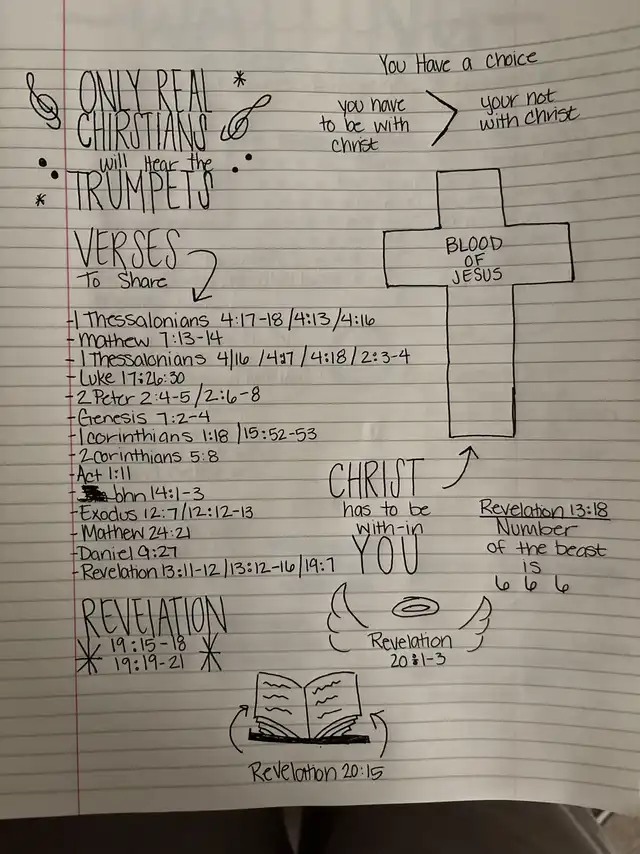 You Have a choice
ONLY REAL
CHIRSTIANS
will Hear the
TRUMPETS
you have
to be with
christ
your not
with christ
VERSES
To Share
BLOOD
OF
JESUS
-1 Thessalonians 4:17-18/4:13/4:16
-mathew 7:13-14
-1 Thessalonians 4/16 /4:17 /4:18/2:3-4
-Luke 17:26:30
-2 Peter 2:4-5/2:6-8
-Genesis 7:2-4
-1 corinthians 1:18 /15:52-53
-2 corinthians 5:8
-Act 1:11
-John 14:1-3
-Exodus 12:7/12:12-13
-Mathew 24:21
-Daniel 9:27
-Revelation 13:11-12/13:12-16/19:7
CHRIST
has to be
with-in
YOU
Revelation 13:18
Number
of the beast
is
6 6 6
REVELATION
19:15-18
19:19-21
Revelation
20:1-3
Revelation 20:15